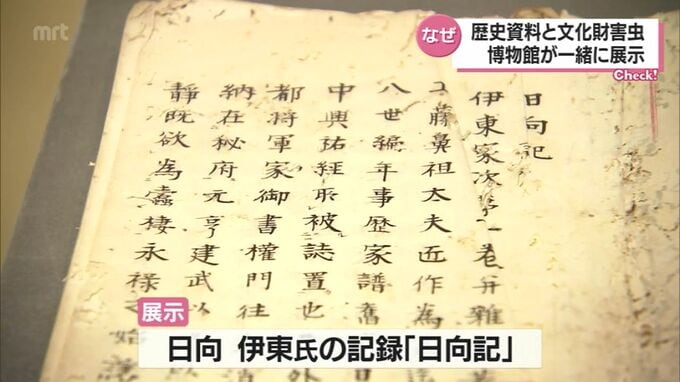 mrt
なぜ
歴史資料と文化財害虫
博物館が一緒に展示
Check!
日向記
伊東家次第一巻并雜
工藤鼻祖太夫近作為
八世編年事歴家譜舊
中興祐経所被誌置也
都将軍家御書權門往
納在秘府元亨建武以
静既欲為蠹棲永禄
展示
日向 伊東氏の記録「日向記」